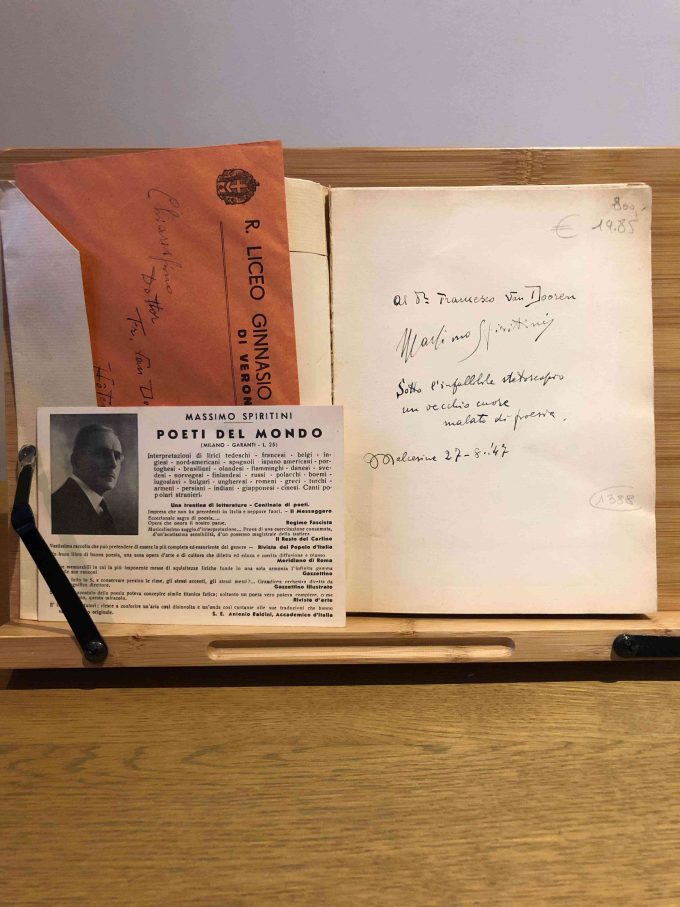 R. LICEO GINNASIO
DI VERON
Dottor
Fr. Van Do
MASSIMO SPIRITINI
POETI DEL MONDO
(MILANO - GARANTI - L. 25)
Interpretazioni di lirici tedeschi - francesi - belgi - in-
glesi - nord-americani - spagnoli - ispano americani - por-
toghesi - brasiliani - olandesi - fiamminghi - danesi - sve-
desi - norvegesi - finlandesi - russi - polacchi - boemi -
iugoslavi - bulgari - ungheresi - romeni - greci - turchi -
armeni - persiani - indiani - giapponesi - cinesi. Canti po-
polari stranieri.
Una trentina di letterature - Centinaia di poeti.
Impresa che non ha precedenti in Italia e neppure fuori. - Il Messaggero
Eccezionale sagra di poesia....
Opera che onora il nostro paese. Regime Fascista
Musicalissimo saggio d'interpretazione... Prova di una coscienza consumata,
d'un'acutezza sensibilità, d'un possesso magistrale della tastiera.
Il Resto del Carlino
Vastissima raccolta che può pretendere di essere la più completa ed esauriente del genere - Rivista del Popolo d'Italia
buon libro di buona poesia, una sana opera d'arte e di cultura che diletta ed eleva e merita diffusione e plauso.
Meridiano di Roma
memorabili in cui la più imponente messe di squisitezze liriche fonde in una sola armonia l'infinita gamma
Gazzettino
fatto lo S. a conservare persino le rime, gli stessi accenti, gli stessi metri?... Grandiosa orchestra diretta da
Gazzettino Illustrato
della poesia poteva concepire simile titanica fatica; soltanto un poeta vero poteva compiere, e me
questo miracolo. Rivista d'arte
rimce a conferire un'aria così disinvolta e un'onda così cantante alle sue traduzioni che hanno
originale. S. E. Antonio Baldini, Accademico d'Italia
€ 19.85
al Dr Francesco Van Dooren
Massimo Spiritini
Sotto l'infallibile stetoscopio
un vecchio cuore
malato di poesia.
Malcesine 27-8-'47
1388